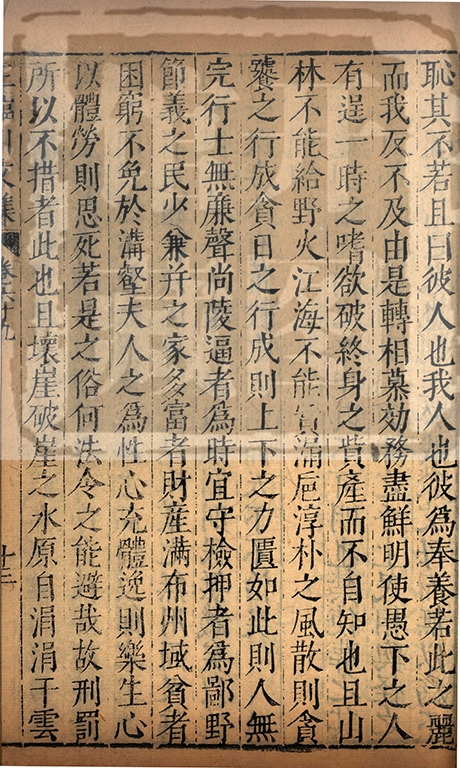 恥其不若且曰彼人也我人也彼爲奉養若此之麗
而我反不及由是轉相慕効務盡鮮明使愚下之人
有逞一時之嗜欲破終身之貲產而不自知也且山
林不能給野火江海不能實漏巵淳朴之風散則貪
饕之行成貪日之行成則上下之力匱如此則人無
完行士無廉聲尚陵逼者爲時宜守檢押者爲鄙野
節義之民少兼并之家多富者財産滿布州域貧者
困窮不免於溝壑夫人之爲性心充體逸則樂生心
以體勞則思死若是之俗何法令之能避哉故刑罰
所以不措者此也且壞崖破崖之水原自涓涓干雲
王臨川文集 卷六十九 十三